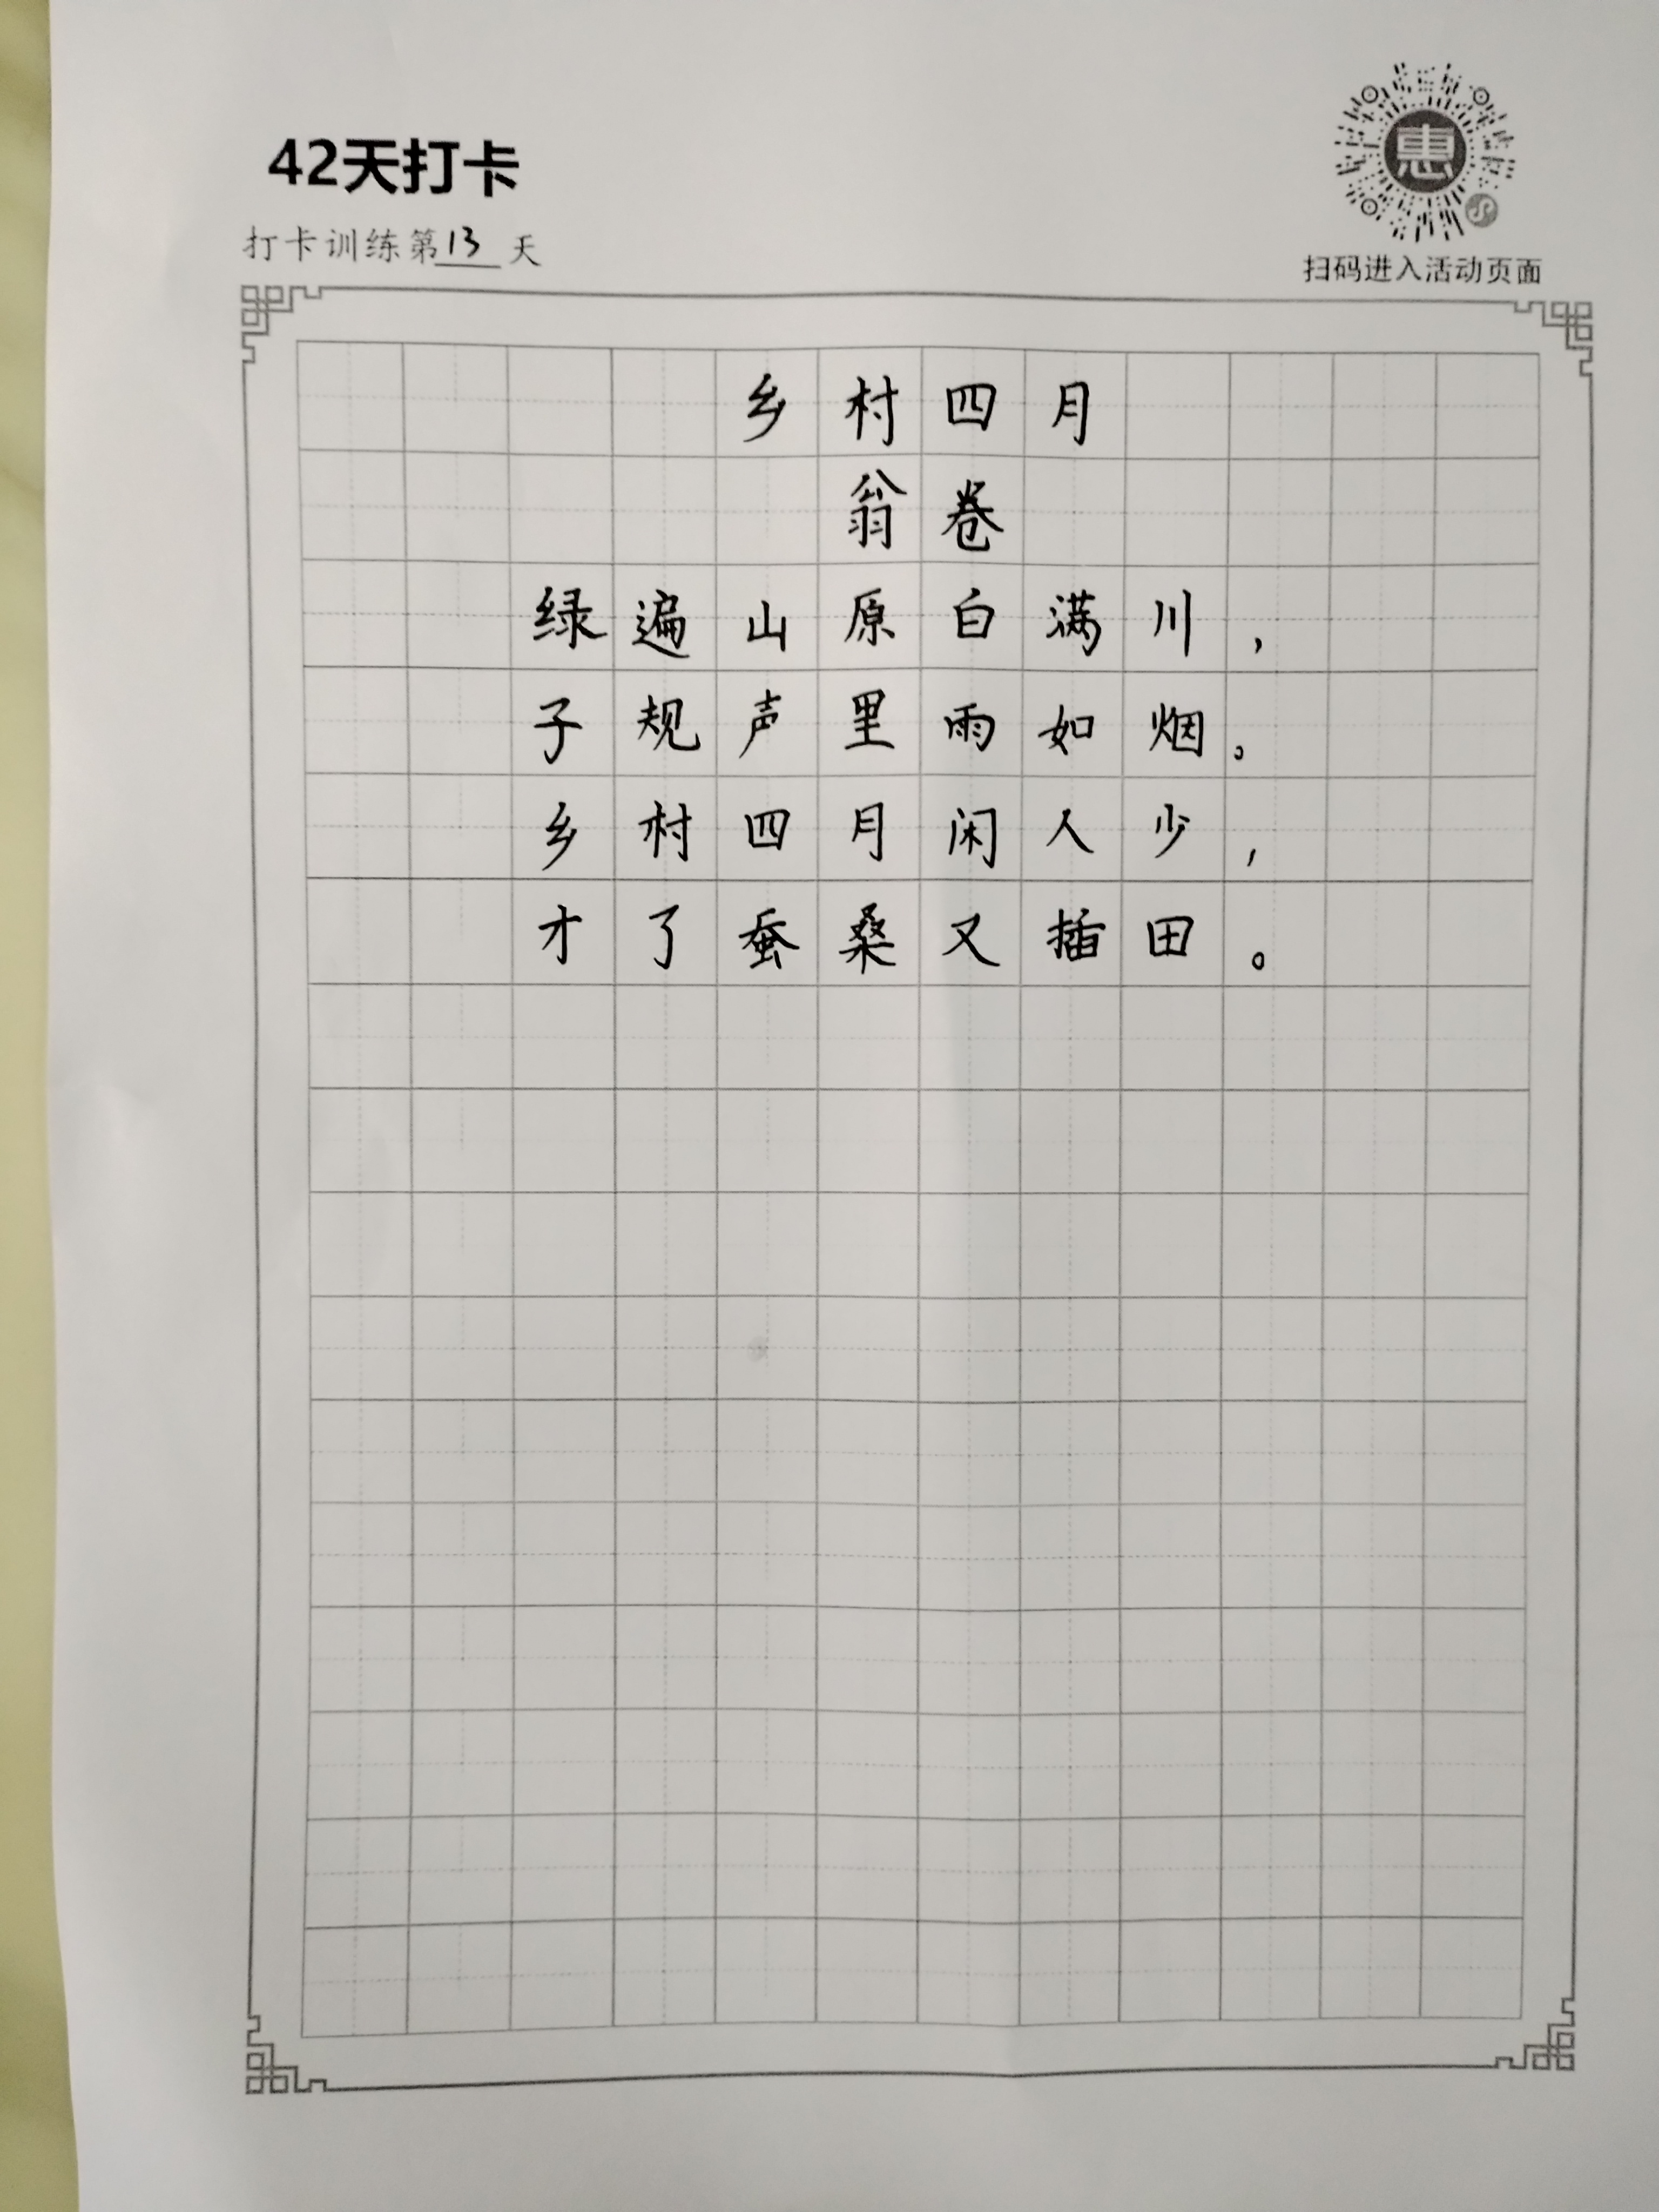 42天打卡
打卡训练第13天
惠
扫码进入活动页面
乡村四月
翁卷
绿遍山原白满川，
子规声里雨如烟。
乡村四月闲人少，
才了蚕桑又插田。